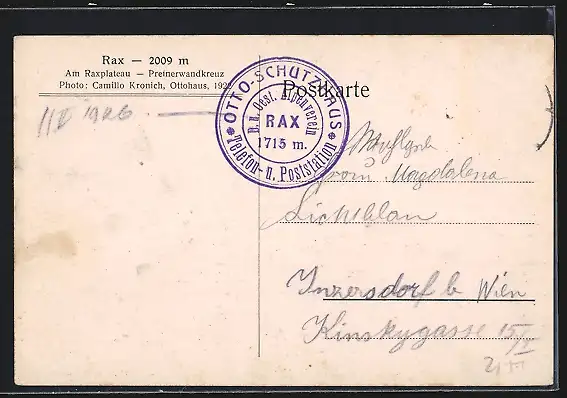 Rax — 2009 m
Am Raxplateau — Preinerwandkreuz
Photo: Camillo Kronich, Ottohaus, 192
Postkarte
OTTO-SCHUTZHAUS
D. u. Oest. Alpenverein
RAX
1715 m.
Telefon- u. Poststation
1926
Magdalena
Lichtblau
Inzersdorf b Wien
Kinskygasse 15/I